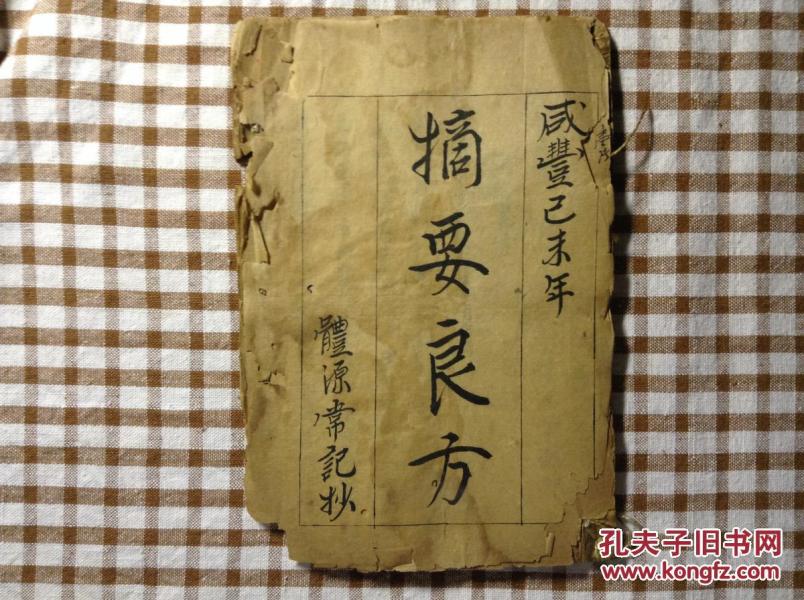 咸豐己未年
摘要良方
體源常記抄
孔夫子旧书网
www.kongfz.com